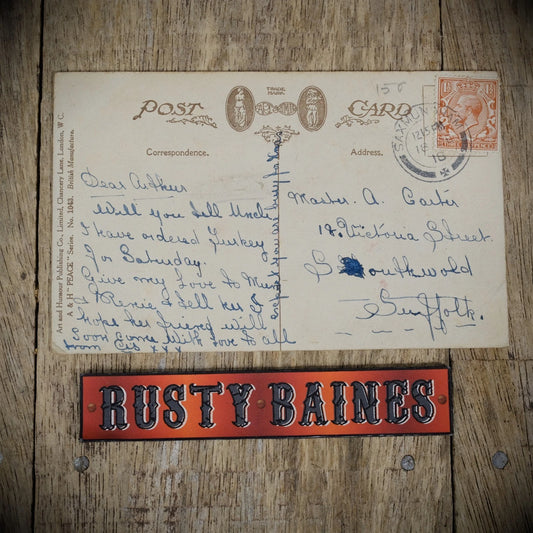 POST CARD
TRADE MARK
Correspondence.
Address.
Art and Humour Publishing Co., Limited, Chancery Lane, London, W C.
A & H "PEACE" Series. No. 1043. British Manufacture.
Dear Arthur
Will you tell Uncle
I have ordered Turkey
for Saturday.
Give my love to Mum
& Renie & tell her I
hope her friend will
soon come with love to all
from Cis xxx
expect you are busy for Xmas
Master. A. Carter
18. Victoria Street.
Southwold
Suffolk.
150
SAXMUNDHAM
12 15 PM
18
RUSTY BAINES